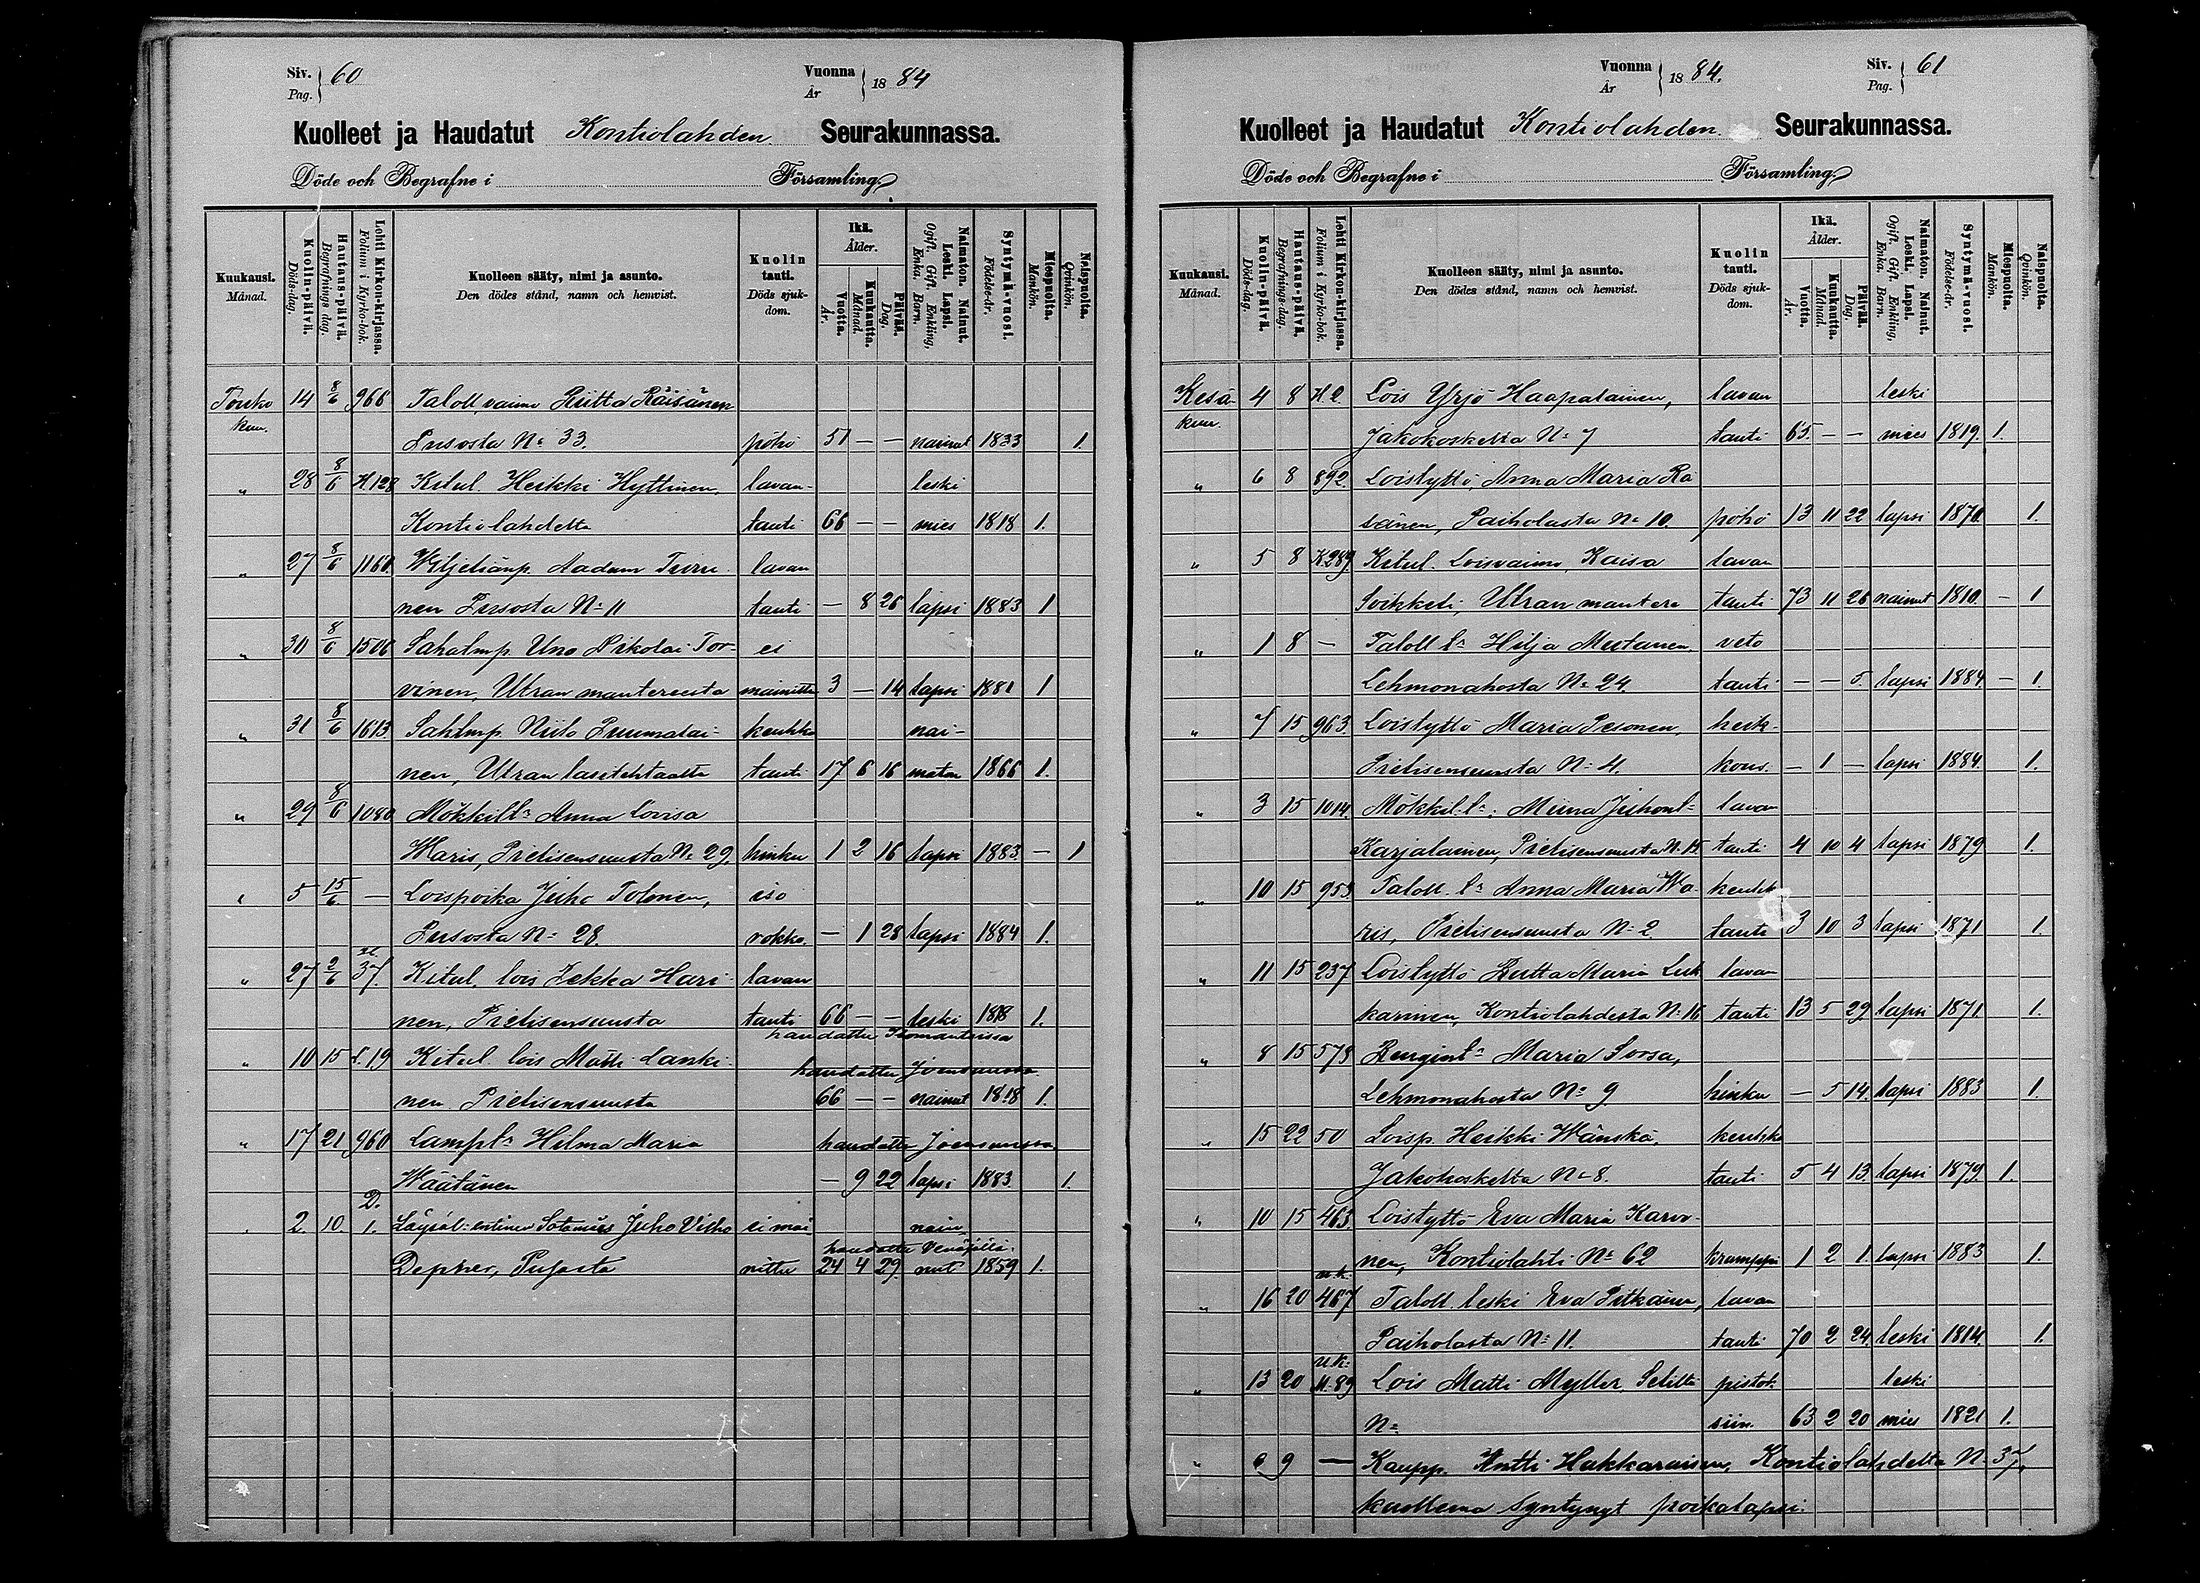 Siv. Pag. 60 Vuonna År 1884
Kuolleet ja Haudatut Kontiolahden Seurakunnassa.
Döde och Begrafne i Församling.
Kuukausi. Månad.
Kuolin-päivä. Döds-dag.
Hautaus-päivä. Begrafnings dag.
Lehti Kirkon-kirjassa. Folium i Kyrko-bok.
Kuolleen sääty, nimi ja asunto. Den dödes stånd, namn och hemvist.
Kuolin tauti. Döds sjukdom.
Ikä. Ålder.
Vuotta. År.
Kuukautta. Månad.
Päivää. Dag.
Naimaton. Nainut. Leski. Lapsi. Ogift. Gift. Enkling, Enka. Barn.
Syntymä-vuosi. Födelse-år.
Miespuolta. Mankön.
Naispuolta. Qvinkön.
Touko 14 8/6 966 Taloll vaimo Riitta Räisänen
kuu. Pusosta No 33. pöhö 51 — — nainut 1833 1.
" 28 8/6 K.128 Kitul. Heikki Hyttinen, lavan- leski
Kontiolahdelta tauti 66 — — mies 1818 1.
" 27 8/6 1160 Wiljeliänp. Aadam Turu- lavan
nen Pusosta No 11 tauti — 8 26 lapsi 1883 1
" 30 8/6 1506 Sahalmp. Uno Nikolai Tor- ei
vinen, Utran mantereesta mainittu 3 — 14 lapsi 1881 1
" 31 8/6 1613 Sahlmp Niilo Puumalai- keuhko nai-
nen, Utran lasitehtaalta tauti 17 6 16 maton 1866 1.
" 29 8/6 1080 Mökkill:s Anna Lovisa
Waris, Pielisensuusta No 29. hinku 1 2 16 lapsi 1883 — 1
" 5 15/6 — Loispoika Juho Tolonen, iso
Pusosta No 28. rokko. — 1 28 lapsi 1884 1.
" 27 2/6 37. Kitul. lois Pekka Hari- lavan
nen, Pielisensuusta tauti 66 — — leski 1818 1.
haudattu Ilomantsissa
" 10 15 L.19 Kitul lois Matti Lanki- haudattu Joensuussa
nen Pielisensuusta 66 — — nainut 1818 1.
" 17 21 960 Lampl:s Hilma Maria haudattu Joensuussa.
Wäätänen — 9 22 lapsi 1883. 1.
2. 10. D. 1. entinen Sotamies Juho Vilho ei mai nain
haudattu Venäjällä.
Depner, nittu 24 4 29. nut 1859 1.
Vuonna År 1884. Siv. Pag. 61
Kuolleet ja Haudatut Kontiolahden Seurakunnassa.
Döde och Begrafne i Församling.
Kuukausi. Månad.
Kuolin-päivä. Döds-dag.
Hautaus-päivä. Begrafnings-dag.
Lehti Kirkon-kirjassa. Folium i Kyrko-bok.
Kuolleen sääty, nimi ja asunto. Den dödes stånd, namn och hemvist.
Kuolin tauti. Döds sjukdom.
Ikä. Ålder.
Vuotta. År.
Kuukautta. Månad.
Päivää. Dag.
Naimaton. Nainut. Leski. Lapsi. Ogift. Gift. Enkling, Enka. Barn.
Syntymä-vuosi. Födelse-år.
Miespuolta. Mankön.
Naispuolta. Qvinkön.
Kesä 4 8 H.2. Lois Yrjö Haapalainen, lavan leski
kuu. Jakokoskelta No 7 tauti 65 — — mies 1819. 1.
" 6 8 892. Loistyttö, Anna Maria Rä
sänen, Paiholasta No 10. pöhö 13 11 22 lapsi 1870. 1.
" 5 8 K.289. Kitul. Loisvaimo, Kaisa lavan
Soikkeli, Utran mantere tauti 73 11 26 nainut 1810. — 1
" 1 8 — Taloll l:s Hilja Mustanen veto
Lehmonahosta No 24. tauti — — 5. lapsi 1884 — 1.
" 7 15 963. Loistyttö Maria Pesonen, heik-
Pielisensuusta No 4. kous. — 1 — lapsi 1884. 1.
" 3 15 1014. Mökkil. l:s, Miina Juhont- lavan
Karjalainen, Pielisensuusta No 15. tauti 4 10 4 lapsi 1879 1.
10 15 953 Taloll. l:s Anna Maria Wa- keuhk
ris, Pielisensuusta No 2 tauti 3 10 3 lapsi 1871 1.
" 11 15 237 Loistyttö Riitta Maria Luk lavan
karinen, Kontiolahdesta No 16 tauti 13 5 29. lapsi 1871. 1.
" 8 15 573 Rengin l:s Maria Sorsa,
Lehmonahosta No 9. hinku — 5 14. lapsi 1883 1.
" 15 22 50 Loisp. Heikki Wänskä, keuhko
Jakokoskelta No 8. tauti 5 4 13. lapsi 1879. 1.
" 10 15 463. Loistyttö Eva Maria Karvo-
nen, Kontiolahti No 62 kramppi 1 2 1. lapsi 1883 1.
" 16 20 u.k. 467 Taloll. leski Eva Pitkänen, lavan
Paiholasta No 11. tauti 70 2 24. leski 1814. 1.
" 13 20 u.k: M.89 Lois Matti Myller, Seliltä pistok leski
No siin. 63 2 20 mies 1821 1.
" 6 9 — Kaupp. Antti Hakkaraisen, Kontiolahdelta N. 37.
kuollena syntynyt poikalapsi.